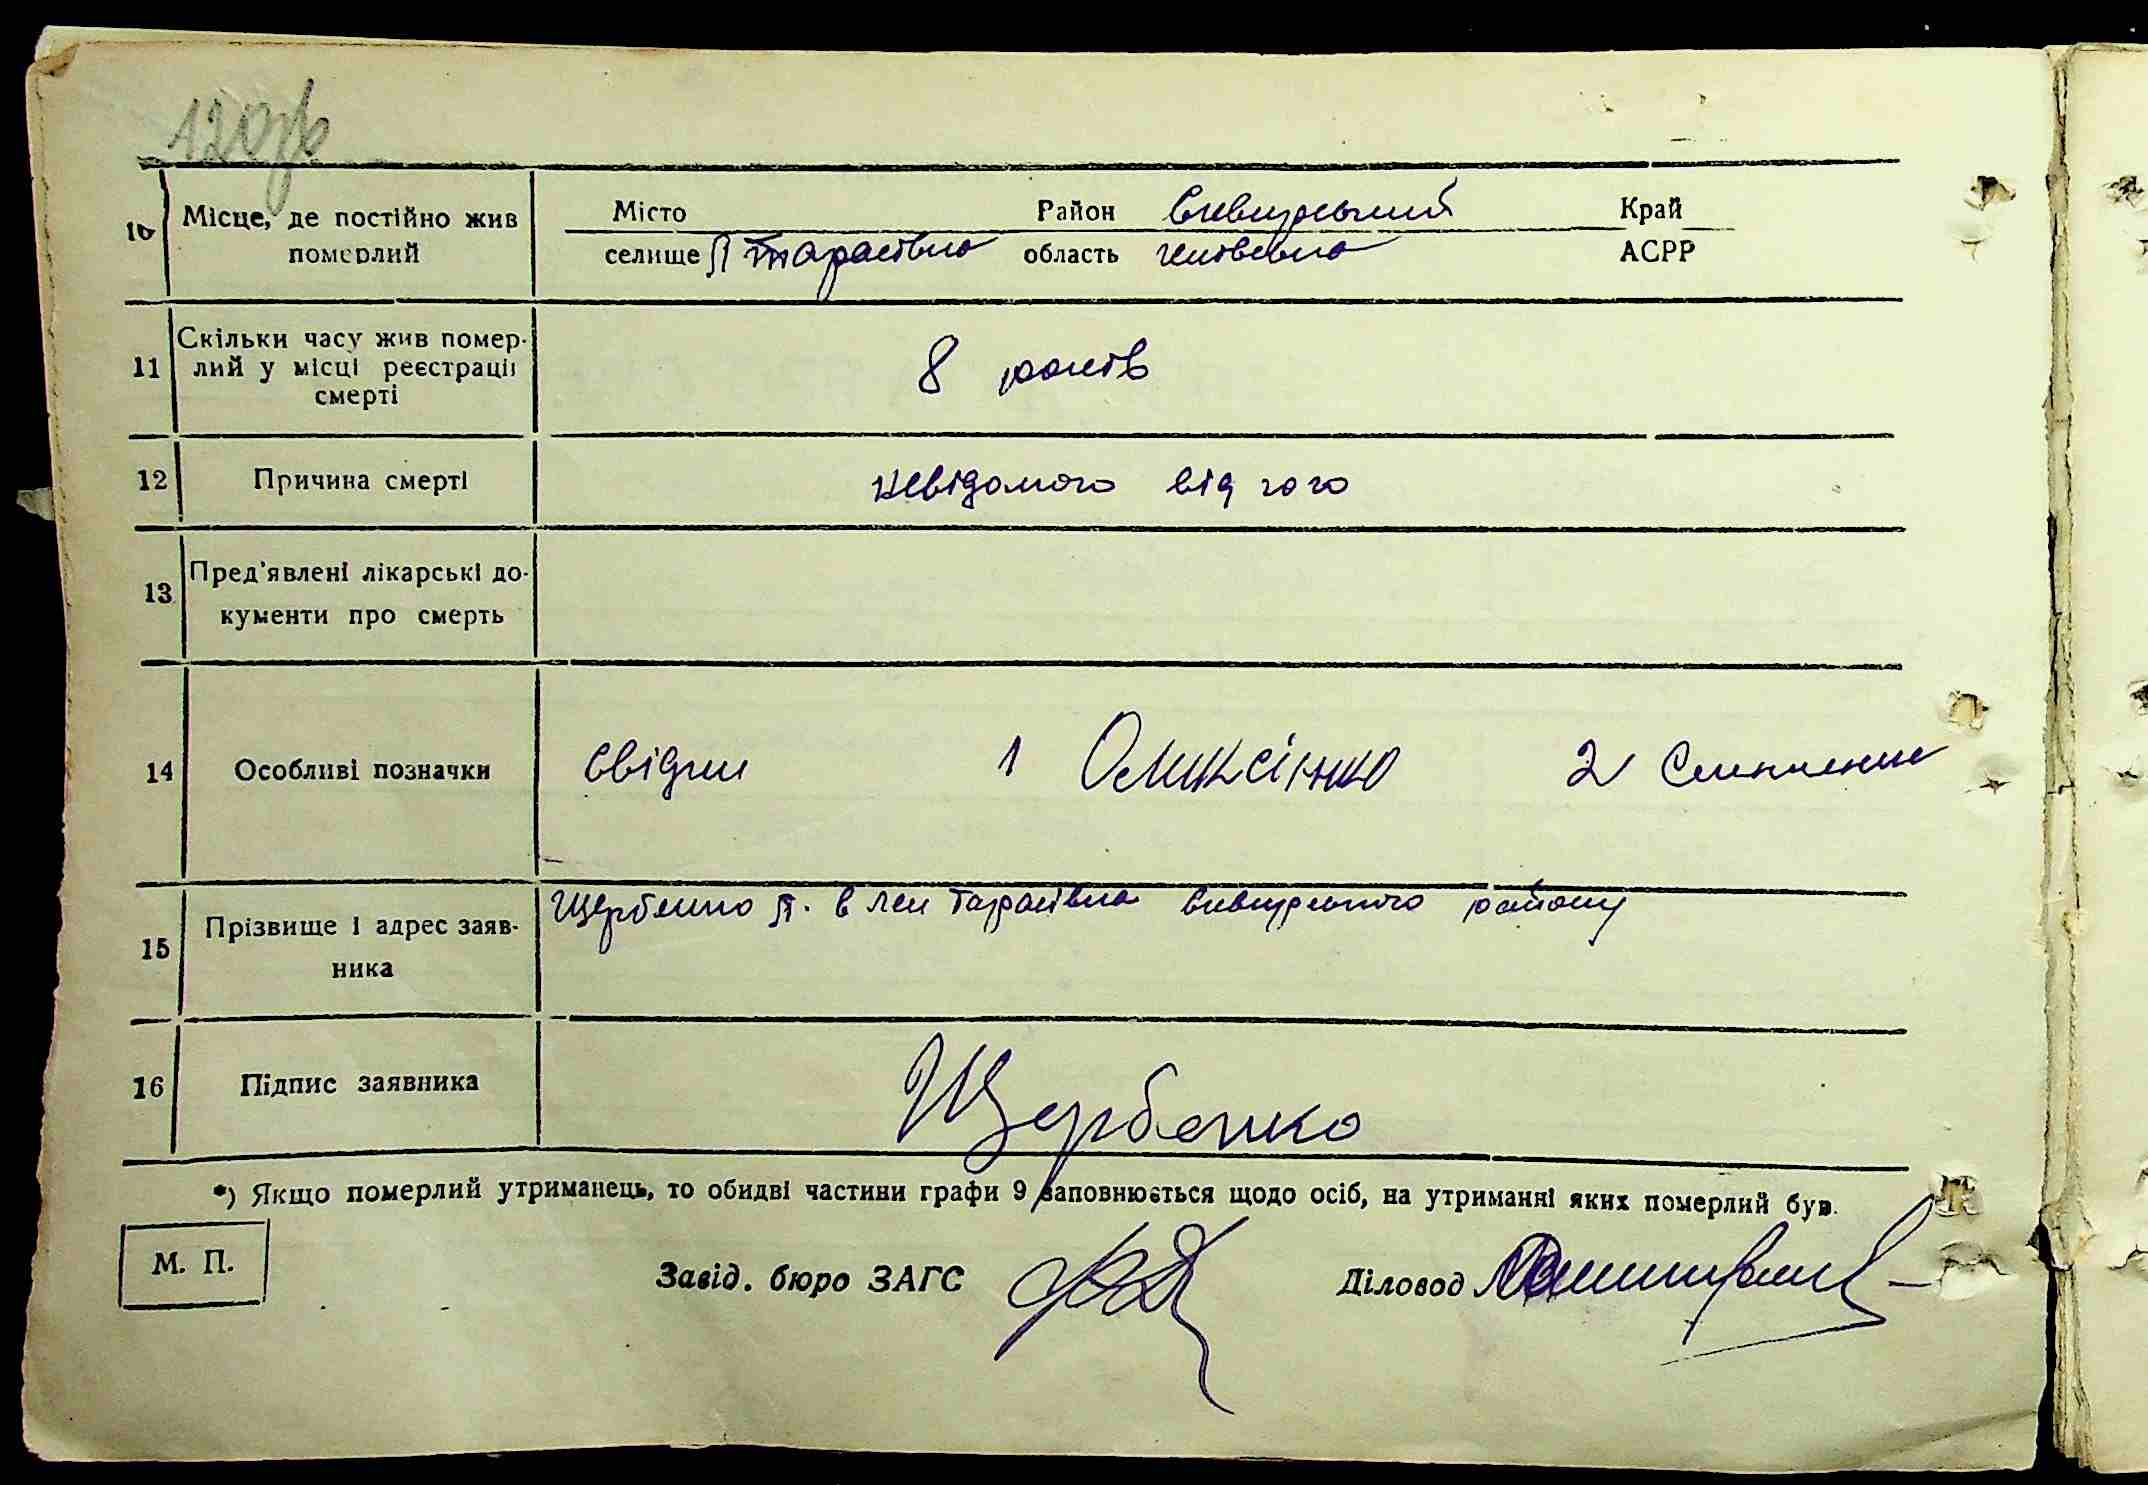 120зв
10 Місце, де постійно жив Місто Район Сквирський Край
померлий селище Тарасівка область Київська АСРР
Скільки часу жив помер-
11 лий у місці реєстрації 8 років
смерті
12 Причина смерті невідомого від чого
Пред'явлені лікарські до-
13
кументи про смерть
14 Особливі позначки свідки 1 Оликсінко 2
Щербенко П. в Тарасівка Сквирського району
Прізвище і адрес заяв-
15
ника
16 Підпис заявника Щербенко
*) Якщо померлий утриманець, то обидві частини графи 9 заповнюється щодо осіб, на утриманні яких померлий був.
М. П. Завід. бюро ЗАГС Діловод